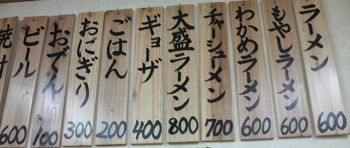 ラーメン 600
もやしラーメン 600
わかめラーメン 600
チャーシューメン 700
大盛ラーメン 800
ギョーザ 400
ごはん 200
おにぎり 300
おでん 100
ビール 600